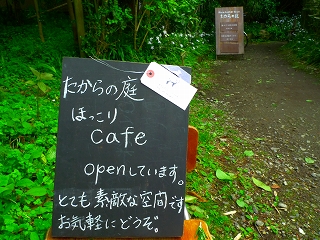 たからの庭
ほっこり
Cafe
openしています。
とても素敵な空間です
お気軽にどうぞ。
たからの庭